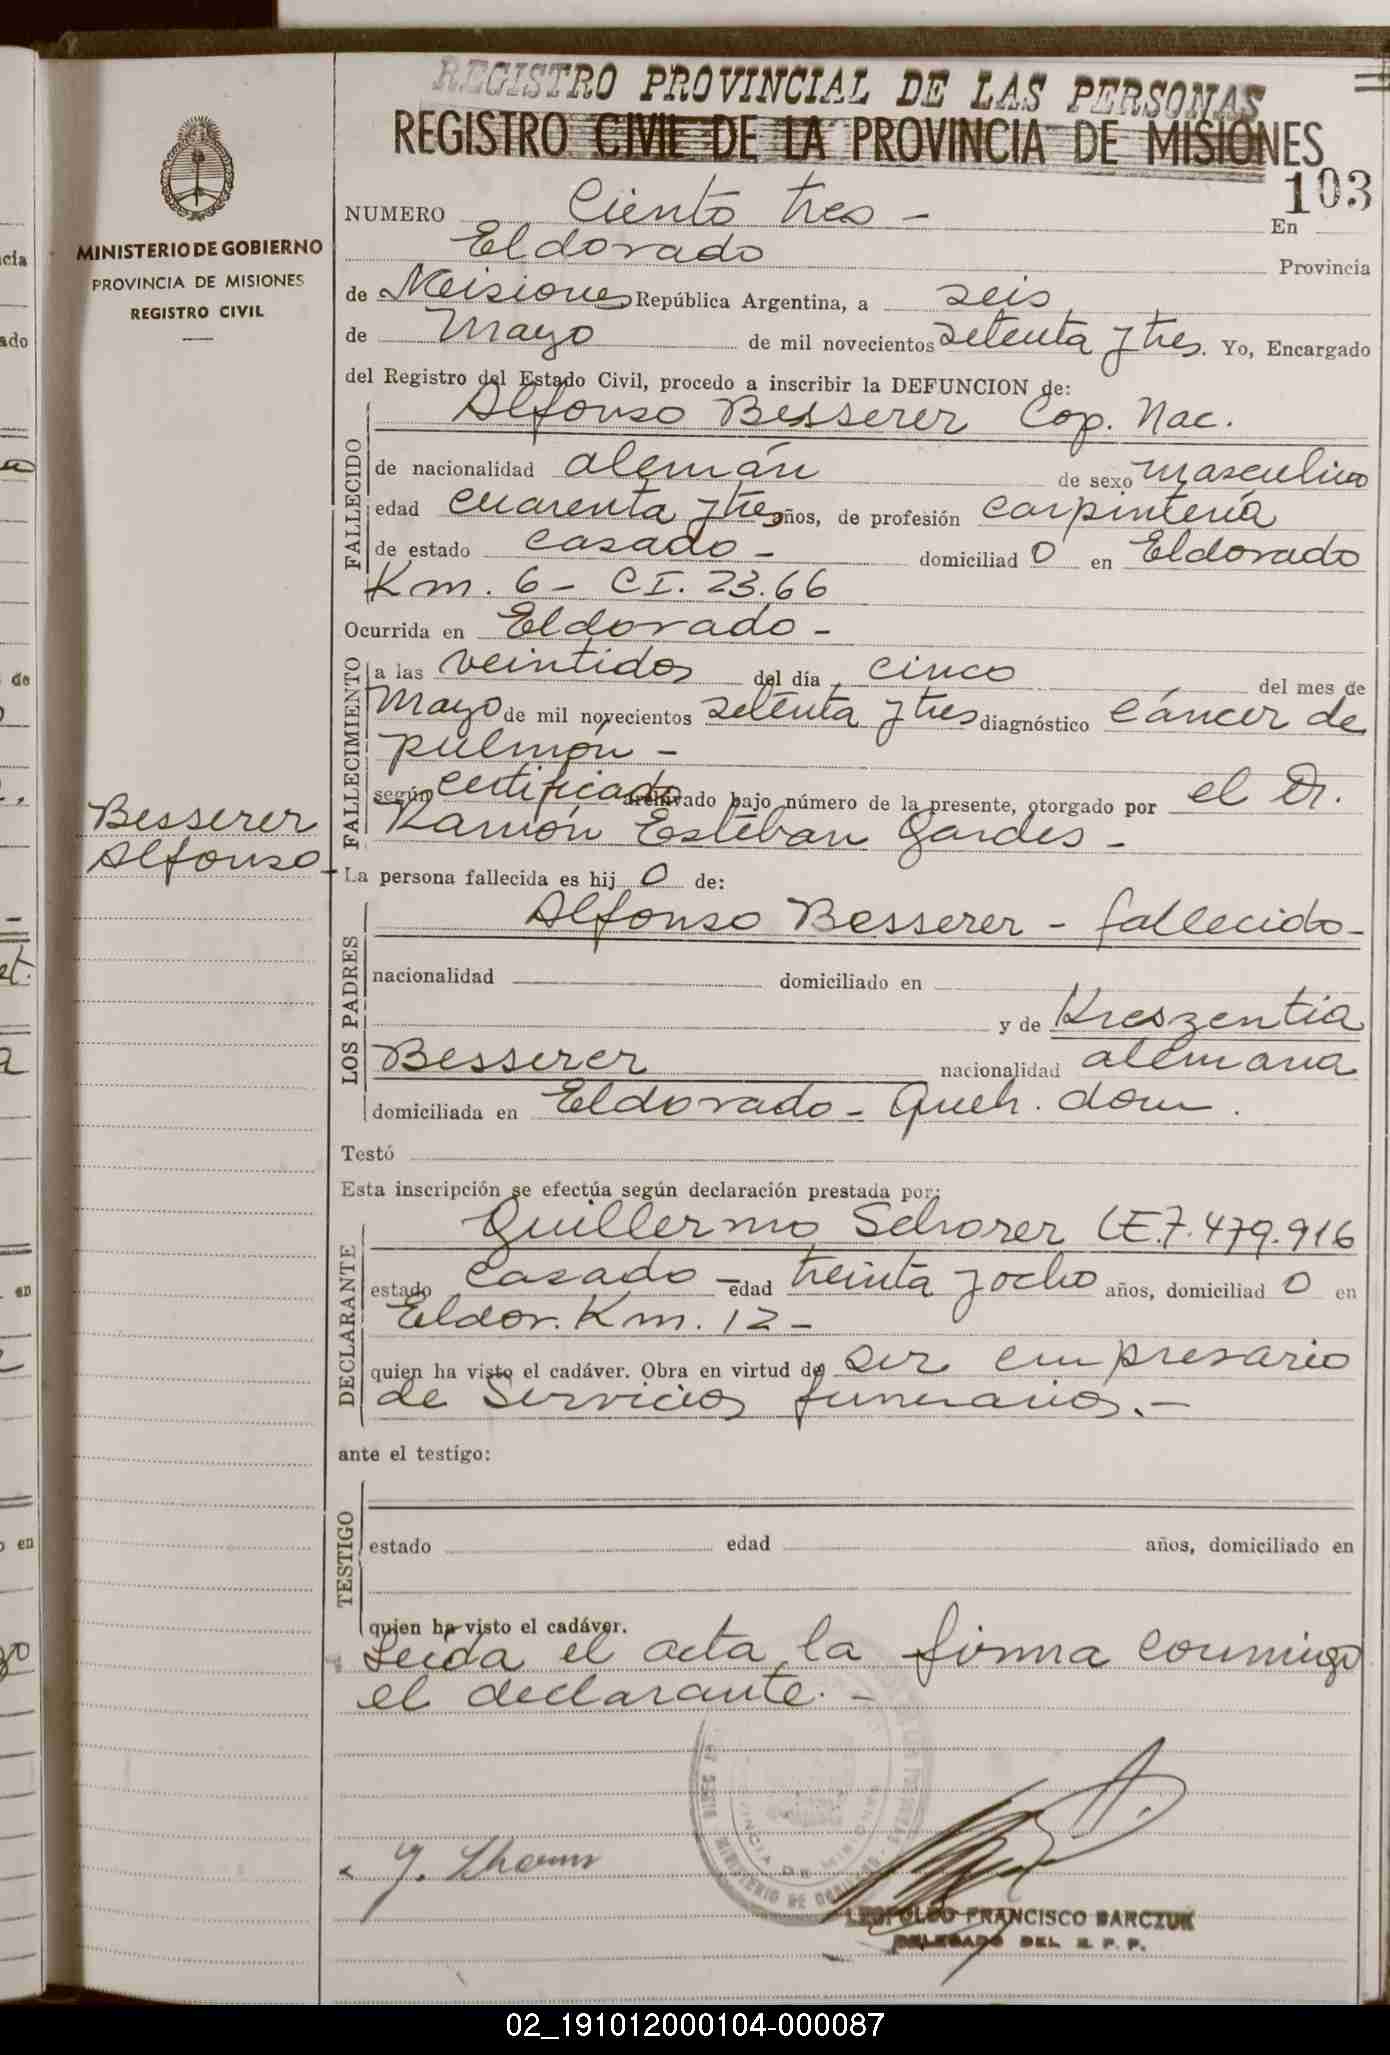 REGISTRO PROVINCIAL DE LAS PERSONAS
REGISTRO CIVIL DE LA PROVINCIA DE MISIONES
103
MINISTERIO DE GOBIERNO
PROVINCIA DE MISIONES
REGISTRO CIVIL
NUMERO Ciento tres - En
Eldorado Provincia
de Misiones República Argentina, a seis
de Mayo de mil novecientos setenta y tres. Yo, Encargado
del Registro del Estado Civil, procedo a inscribir la DEFUNCION de:
Alfonso Besserer Cop. Nac.
FALLECIDO
de nacionalidad alemán de sexo masculino
edad cuarenta y tres años, de profesión carpintería
de estado casado - domiciliad o en Eldorado
Km. 6 - CI. 23.66
Ocurrida en Eldorado -
FALLECIMIENTO
a las veintidos del día cinco del mes de
Mayo de mil novecientos setenta y tres diagnóstico cáncer de
pulmón -
según certificado archivado bajo número de la presente, otorgado por el Dr.
Ramón Esteban Gardes -
Besserer
Alfonso
La persona fallecida es hij o de:
Alfonso Besserer - fallecido -
LOS PADRES
nacionalidad domiciliado en
y de Kreszentia
Besserer nacionalidad alemana
domiciliada en Eldorado - Queh. dom.
Testó
Esta inscripción se efectúa según declaración prestada por:
Guillermo Schorer LE.7.479.916
DECLARANTE
estado casado - edad treinta y ocho años, domiciliad o en
Eldor. Km. 12 -
quien ha visto el cadáver. Obra en virtud de ser empresario
de Servicios funerarios. -
ante el testigo:
TESTIGO
estado edad años, domiciliado en
quien ha visto el cadáver.
Leída el acta, la firma conmigo
el declarante. -
LEOPOLDO FRANCISCO BARCZUK
DELEGADO DEL R. P. P.
02_191012000104-000087